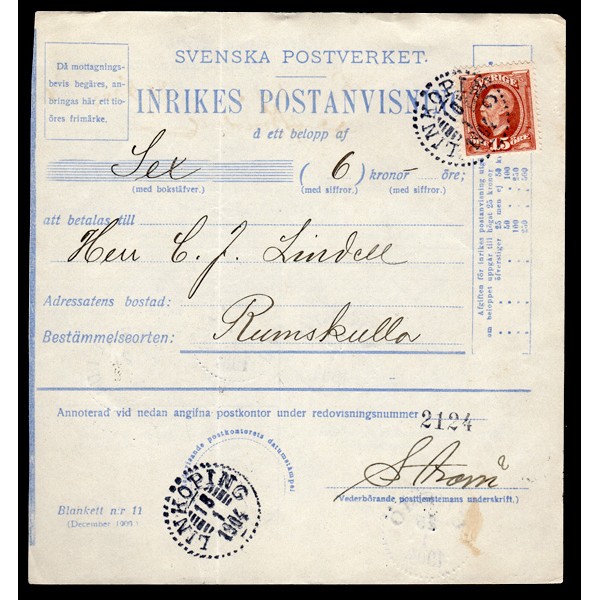 Då mottagnings-
bevis begäres, an-
bringas här ett tio-
öres frimärke.
SVENSKA POSTVERKET.
INRIKES POSTANVISNING
å ett belopp af
SVERIGE
15 ÖRE
LINKÖPING
Sex (6) kronor öre;
(med bokstäfver.) (med siffror.) (med siffror.)
att betalas till
Herr C. J. Lindell
Adressatens bostad:
Bestämmelseorten: Rumskulla
Afgiften för inrikes postanvisning utgör,
om beloppet uppgår till högst 25 kronor
öfverstiger 25 men ej 50 kr
50 100
100 250
250 500
Annoterad vid nedan angifna postkontor under redovisningsnummer 2124
postkontorets datumstämpel
LINKÖPING
18
1
1904
Ström
Vederbörande posttjenstemans underskrift.)
Blankett n:r 11